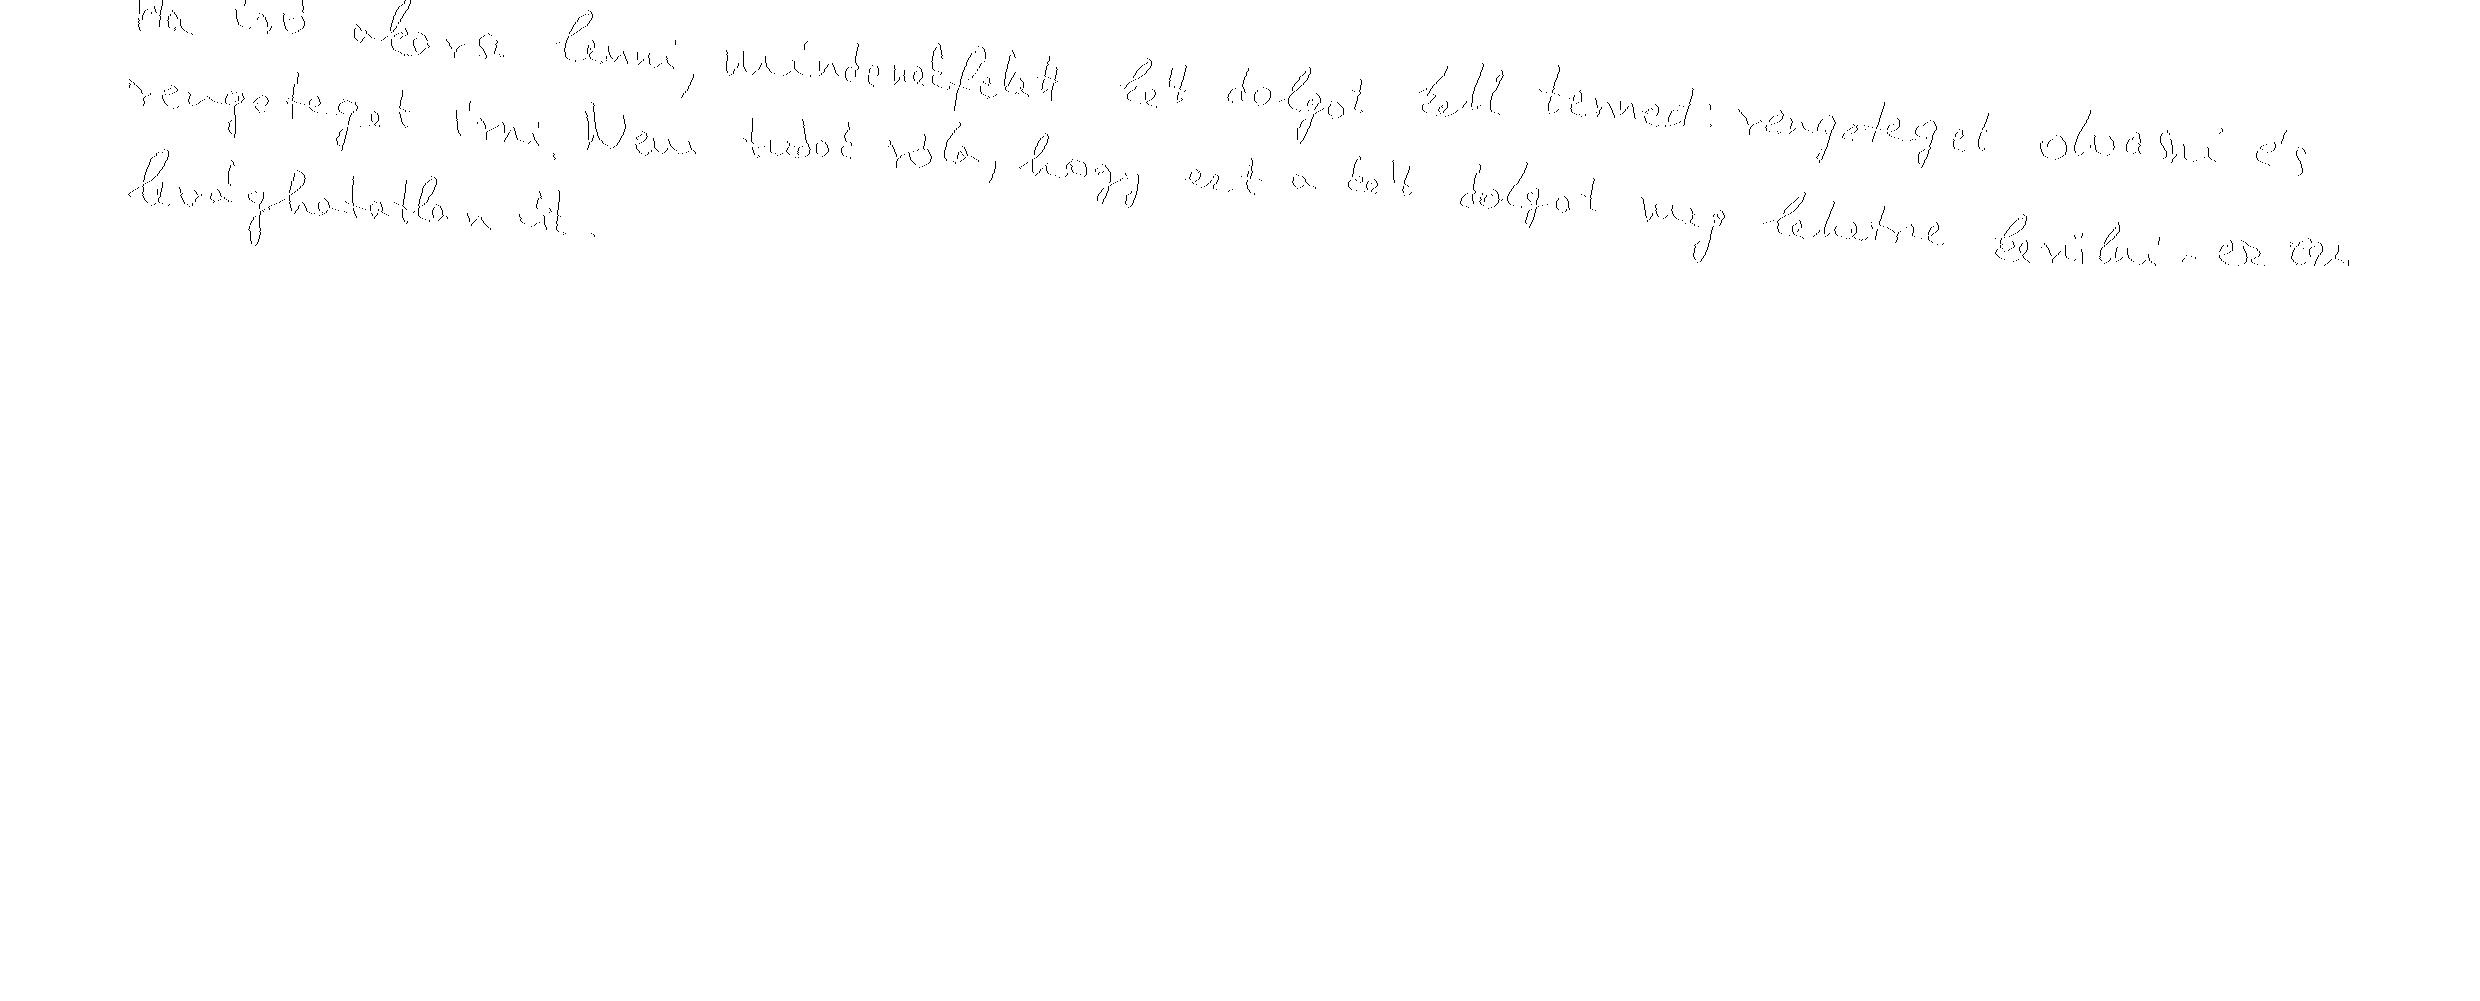 Ha író akarsz lenni, mindenekfelett két dolgot kell tenned: rengeteget olvasni és
rengeteget írni. Nem tudok róla, hogy ezt a két dolgot meg lehetne kerülni - ez az
levághatatlan út.